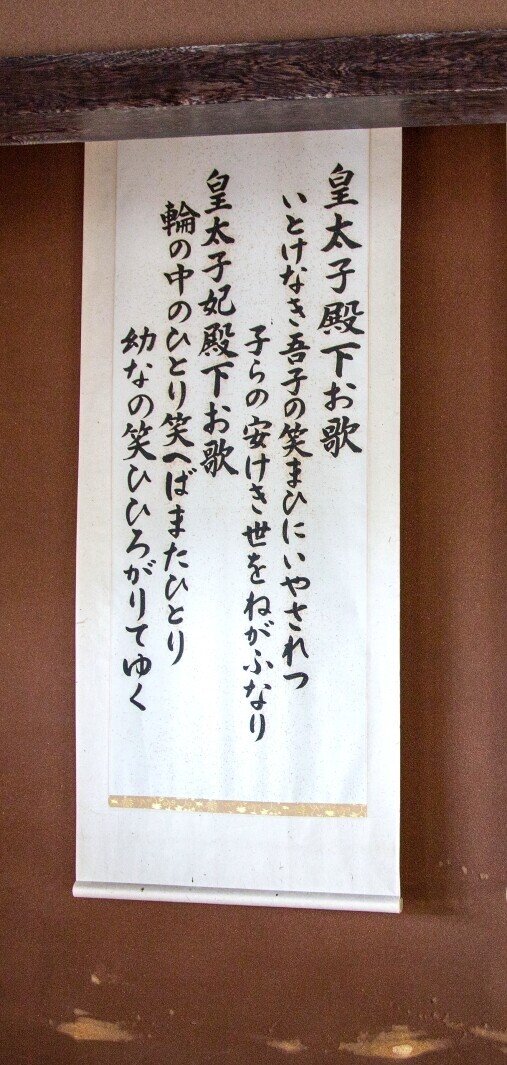 皇太子殿下お歌
いとけなき吾子の笑まひにいやされつ
子らの安けき世をねがふなり
皇太子妃殿下お歌
輪の中のひとり笑へばまたひとり
幼なの笑ひひろがりてゆく